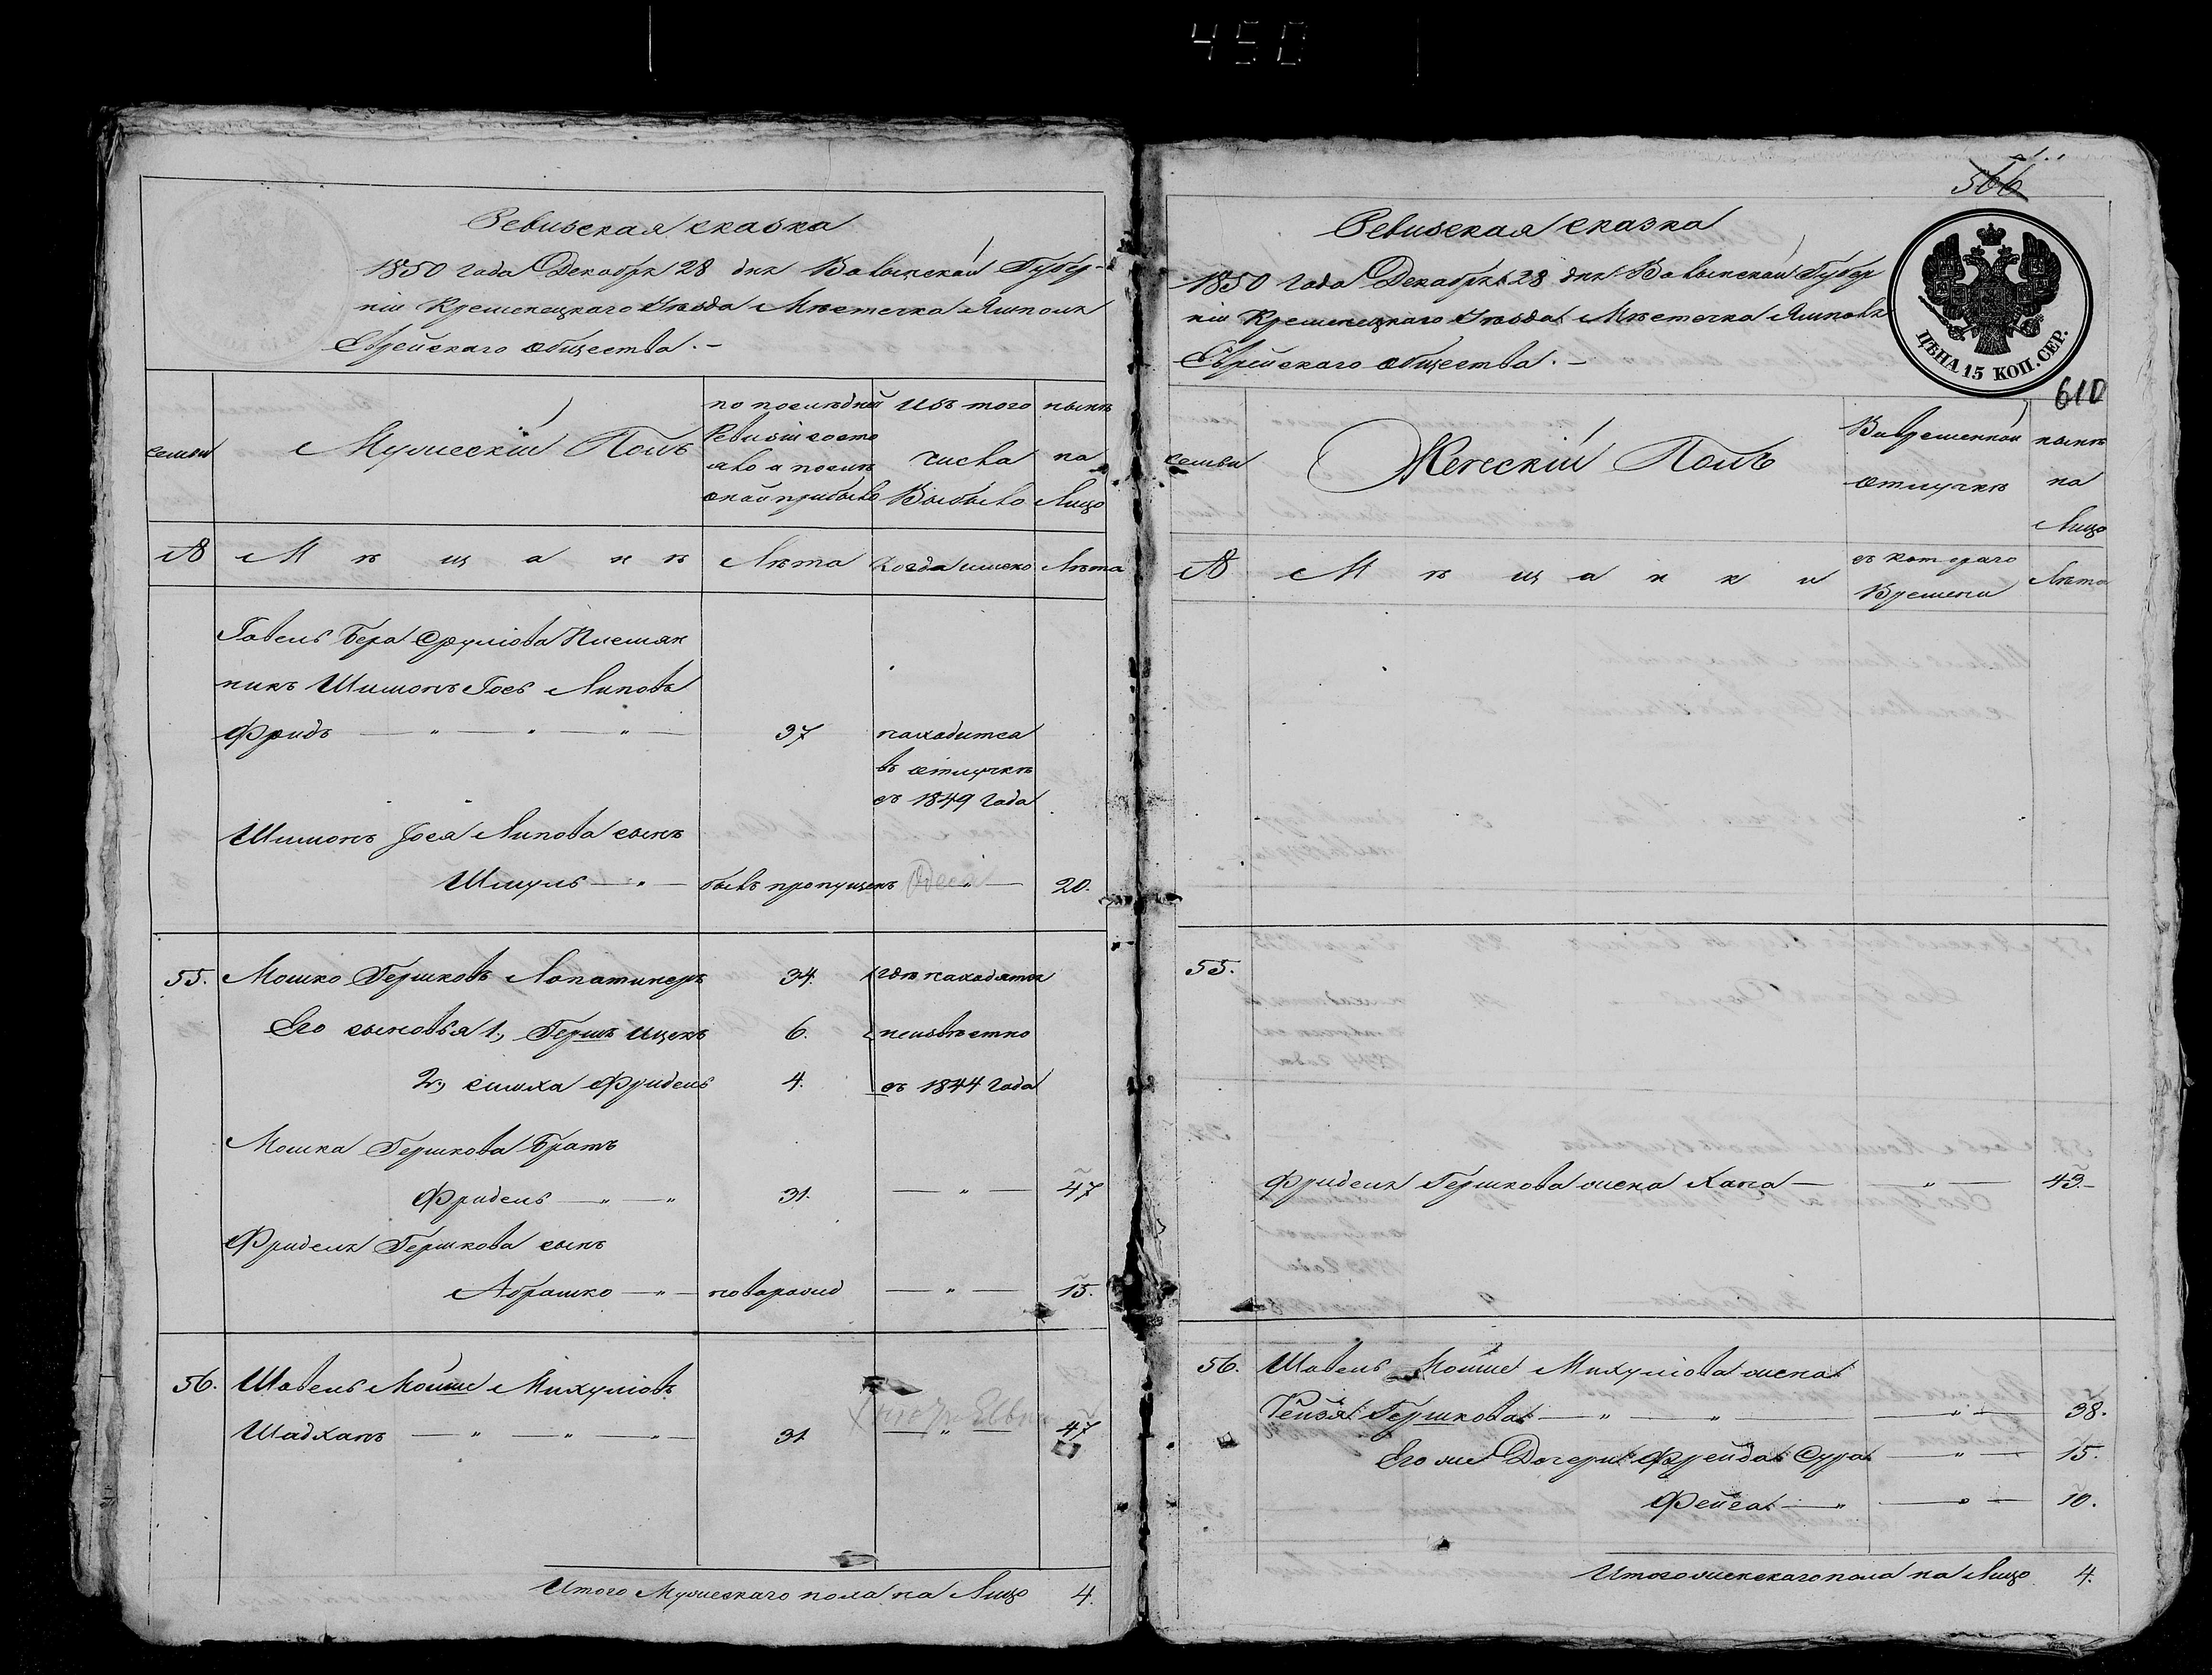 450
Ревизская сказка
1850 года Декабря 28 дня Волынской Губер-
нiи Кременецкаго Уѣзда Мѣстечка Ямполя
Еврейскаго общества. –
семьи
Мужескiй Полъ
по послѣдней
Ревизiи состо
яло и послѣ
оной прибыло
изъ того
числа
Выбыло
нынѣ
на
Лицо
№
Мѣщанѣ
Лѣта
Когда имено
Лѣта
Бера Сруліова Племян
никъ Шимонъ Iось Липовъ
Фридъ — " — " — " — 37 находится
въ отлучкѣ
съ 1849 года
Шимонъ Iося Липова сынъ
Шмуль — " — былъ пропущенъ — " — 20.
55. Мошко Гершковъ Лопатинеръ 34. гдѣ находятся
Его сыновья 1, Гершъ Ицекъ 6. неизвѣстно
2, Симха Фридель 4. съ 1844 года
Мошка Гершкова Братъ
Фридель — " — " 31. — " — 47
Фриделя Гершкова сынъ
Абрашко — " — новорожд — " — 15.
56. Шавель Мойше Михуліовъ
Шадханъ — " — " — " — 31 — " — 47
Итого Мужескаго пола на Лицо 4.
566
Ревизская сказка
1850 года Декабря 28 дня Волынской Губер
нiи Кременецкаго Уѣзда Мѣстечка Ямполя
Еврейскаго общества. –
ЦѢНА 15 КОП. СЕР.
610
семьи
Женскiй Полъ
Вовременной
отлучкѣ
нынѣ
на
Лицо
№
Мѣщанки
съ котораго
Времени
Лѣта
55.
Фриделя Гершкова жена Хана — — " — 43.
56. Шавель Мойше Михуліова жена
Рейзя Гершкова — " — " — " — 38.
Его же Дочери Фрейда Сура — " — 15.
Фейга — " — " — 10.
Итого женскаго пола на Лицо 4.